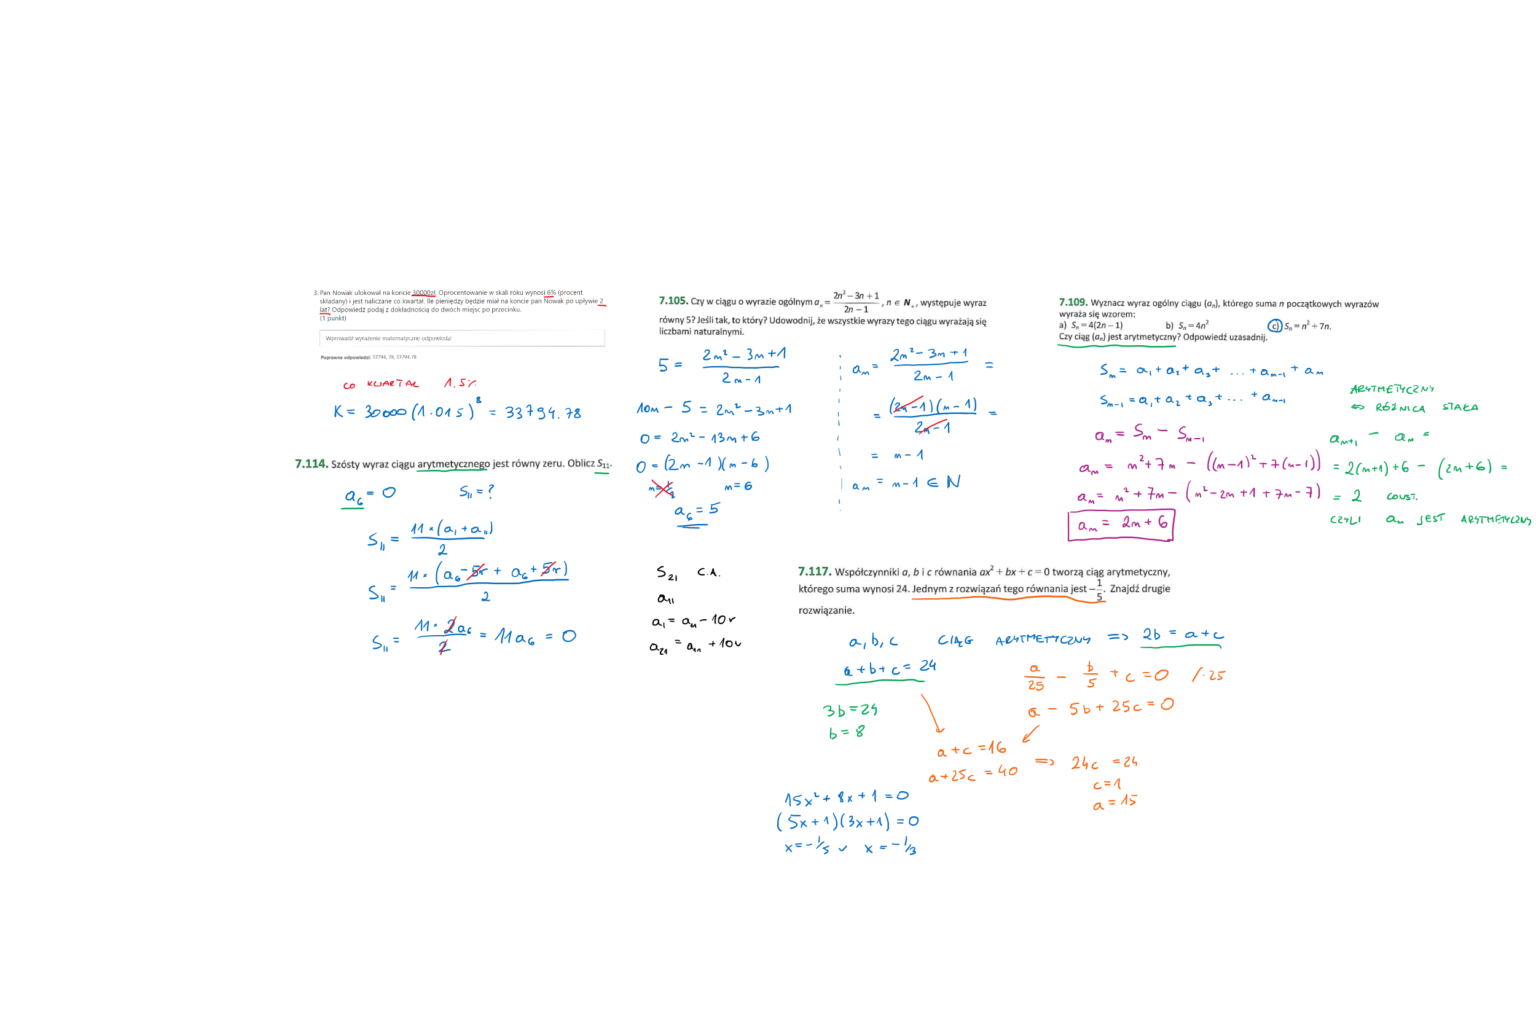 3. Pan Nowak ulokował na koncie 30000zł. Oprocentowanie w skali roku wynosi 6% (procent
składany) i jest naliczane co kwartał. Ile pieniędzy będzie miał na koncie pan Nowak po upływie 2
lat? Odpowiedź podaj z dokładnością do dwóch miejsc po przecinku.
(1 punkt)
Wprowadź wyrażenie matematyczne odpowiedzi
Poprawne odpowiedzi: 33794, 78, 33794.78
CO KWARTAŁ 1.5%
K = 30000 (1.015)^8 = 33794.78
7.114. Szósty wyraz ciągu arytmetycznego jest równy zeru. Oblicz S₁₁.
a₆ = 0 S₁₁ = ?
S₁₁ = 11·(a₁ + a₁₁) / 2
S₁₁ = 11·(a₆ - 5r + a₆ + 5r) / 2
S₁₁ = 11·2a₆ / 2 = 11a₆ = 0
7.105. Czy w ciągu o wyrazie ogólnym aₙ = (2n² – 3n + 1) / (2n – 1), n ∈ N₊, występuje wyraz
równy 5? Jeśli tak, to który? Udowodnij, że wszystkie wyrazy tego ciągu wyrażają się
liczbami naturalnymi.
5 = (2n² - 3n + 1) / (2n - 1)
10n - 5 = 2n² - 3n + 1
0 = 2n² - 13n + 6
0 = (2n - 1)(n - 6)
n = 1/2 n = 6
a₆ = 5
aₙ = (2n² - 3n + 1) / (2n - 1) =
= (2n - 1)(n - 1) / (2n - 1) =
= n - 1
aₙ = n - 1 ∈ N
7.109. Wyznacz wyraz ogólny ciągu (aₙ), którego suma n początkowych wyrazów
wyraża się wzorem:
a) Sₙ = 4(2n – 1) b) Sₙ = 4n² c) Sₙ = n² + 7n.
Czy ciąg (aₙ) jest arytmetyczny? Odpowiedź uzasadnij.
Sₙ = a₁ + a₂ + a₃ + ... + aₙ₋₁ + aₙ
Sₙ₋₁ = a₁ + a₂ + a₃ + ... + aₙ₋₁
aₙ = Sₙ - Sₙ₋₁
aₙ = n² + 7n - ((n-1)² + 7(n-1))
aₙ = n² + 7n - (n² - 2n + 1 + 7n - 7)
aₙ = 2n + 6
ARYTMETYCZNY
⇔ RÓŻNICA STAŁA
aₙ₊₁ - aₙ =
= 2(n+1) + 6 - (2n+6) =
= 2 CONST.
CZYLI aₙ JEST ARYTMETYCZNY
S₂₁ C.A.
a₁₁
a₁ = a₁₁ - 10r
a₂₁ = a₁₁ + 10r
7.117. Współczynniki a, b i c równania ax² + bx + c = 0 tworzą ciąg arytmetyczny,
którego suma wynosi 24. Jednym z rozwiązań tego równania jest –1/5. Znajdź drugie
rozwiązanie.
a, b, c CIĄG ARYTMETYCZNY ⇒ 2b = a + c
a + b + c = 24
3b = 24
b = 8
a/25 - b/5 + c = 0 /·25
a - 5b + 25c = 0
a + c = 16
a + 25c = 40 ⇒ 24c = 24
c = 1
a = 15
15x² + 8x + 1 = 0
(5x + 1)(3x + 1) = 0
x = -1/5 ∨ x = -1/3